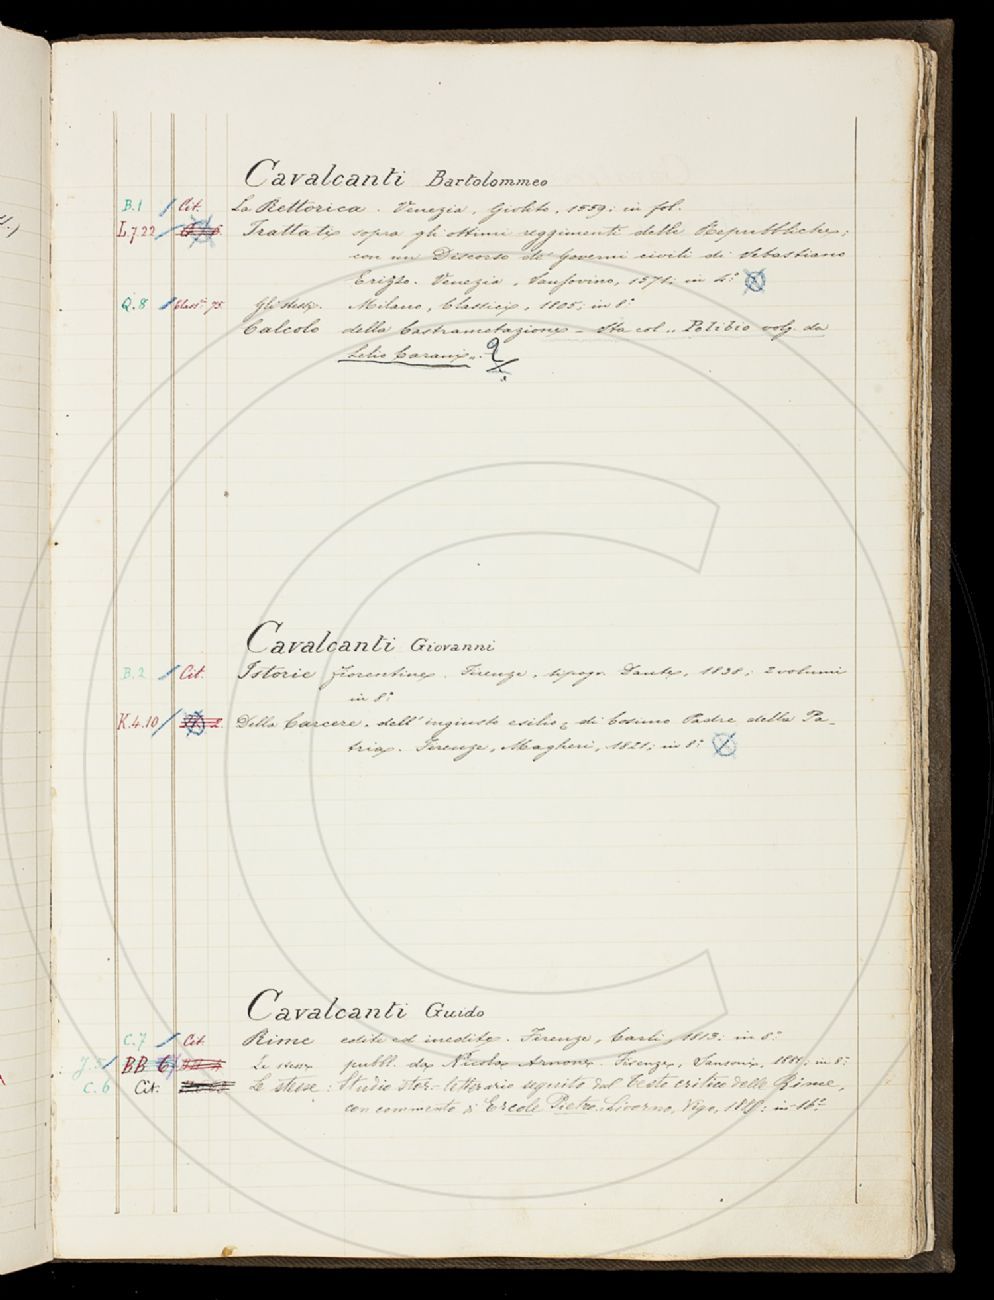 Cavalcanti Bartolommeo
B.1 Cit. La Rettorica. Venezia, Giolito, 1559; in fol.
L722 Trattati sopra gli ottimi reggimenti delle Repubbliche;
con un Discorso de' Governi civili di Sebastiano
Erizzo. Venezia, Sansovino, 1571; in 4.°
Q.8 Class.ci 75 Gli stessi. Milano, Classici, 1805; in 8.°
Calcolo della Castrametazione - Sta col „ Polibio volg. da
Lelio Carani „.
Cavalcanti Giovanni
B.2 Cit. Istorie fiorentine. Firenze, tipogr. Dante, 1838; 2 volumi
in 8.°
K.4.10 Della Carcere, dell'ingiusto esilio, di Cosimo Padre della Pa-
tria. Firenze, Magheri, 1821; in 8.°
Cavalcanti Guido
C.7 Cit Rime edite ed inedite. Firenze, Carli, 1813; in 8.°
J.5 BB 6 Le stesse pubbl. da Nicola Arnone. Firenze, Sansoni, 1881; in 8.°
C.6 Cit. Le stesse: Studio stor.-letterario seguito dal Testo critico delle Rime,
con commento di Ercole Livorno, Vigo, in 16.°